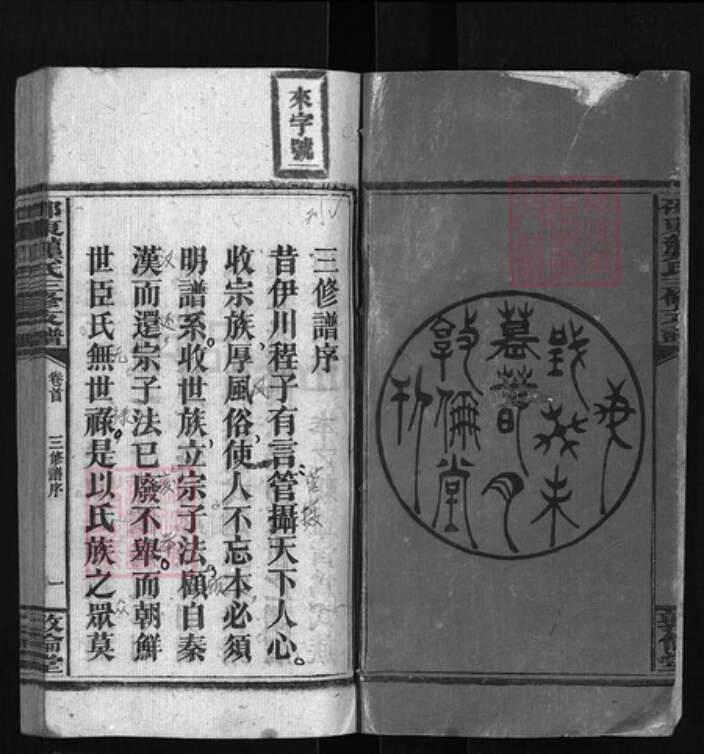 歲癸未
暮春月
敦倫堂
刊
來字號
三修譜序
昔伊川程子有言管攝天下人心。
收宗族厚風俗使人不忘本必須
明譜系。收世族立宗子法顧自秦
漢而還宗子法已廢不舉。而朝鮮
世臣氏無世祿。是以氏族之眾莫
氏三修支譜
卷首
三修譜序
一
敦倫堂